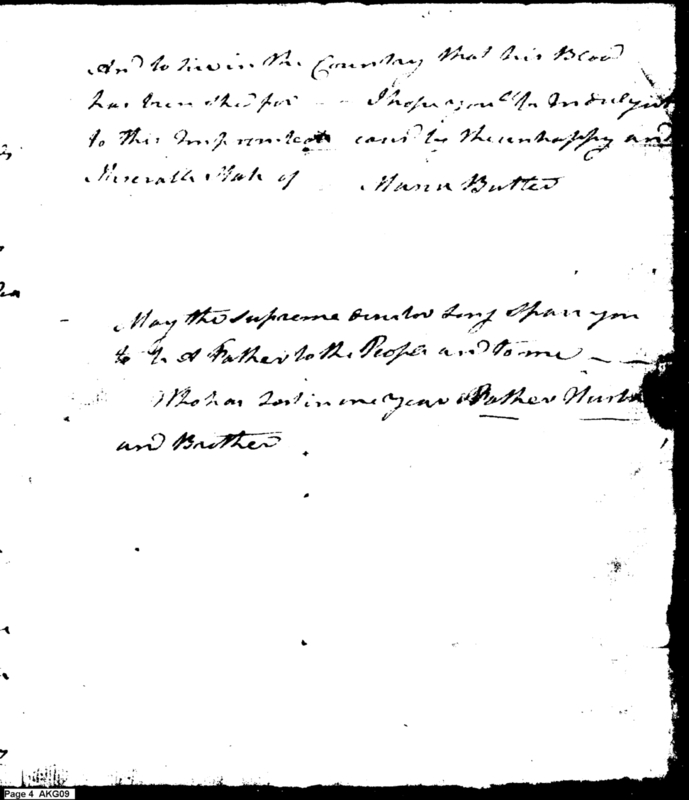 And to live in the Country that his Blood
has been shed for - - I hope you'l be Indulgent
to this Imprudence caus'd by the unhappy and
Miserable State of Maria Butler
May the Supreme director Long Spare you
to be A Father to the People and to me — —
Who has Lost in one year a Father Husb
and Brother
Page 4 AKG09